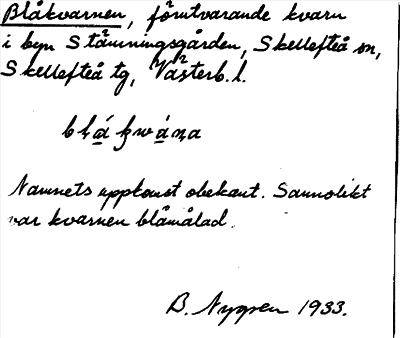 Blåkvarnen, förutvarande kvarn
i byn Stämningsgården, Skellefteå sn,
Skellefteå tg, Västerb. l.
Namnets uppkomst obekant. Sannolikt
var kvarnen blåmålad.
B. Nygren 1933.